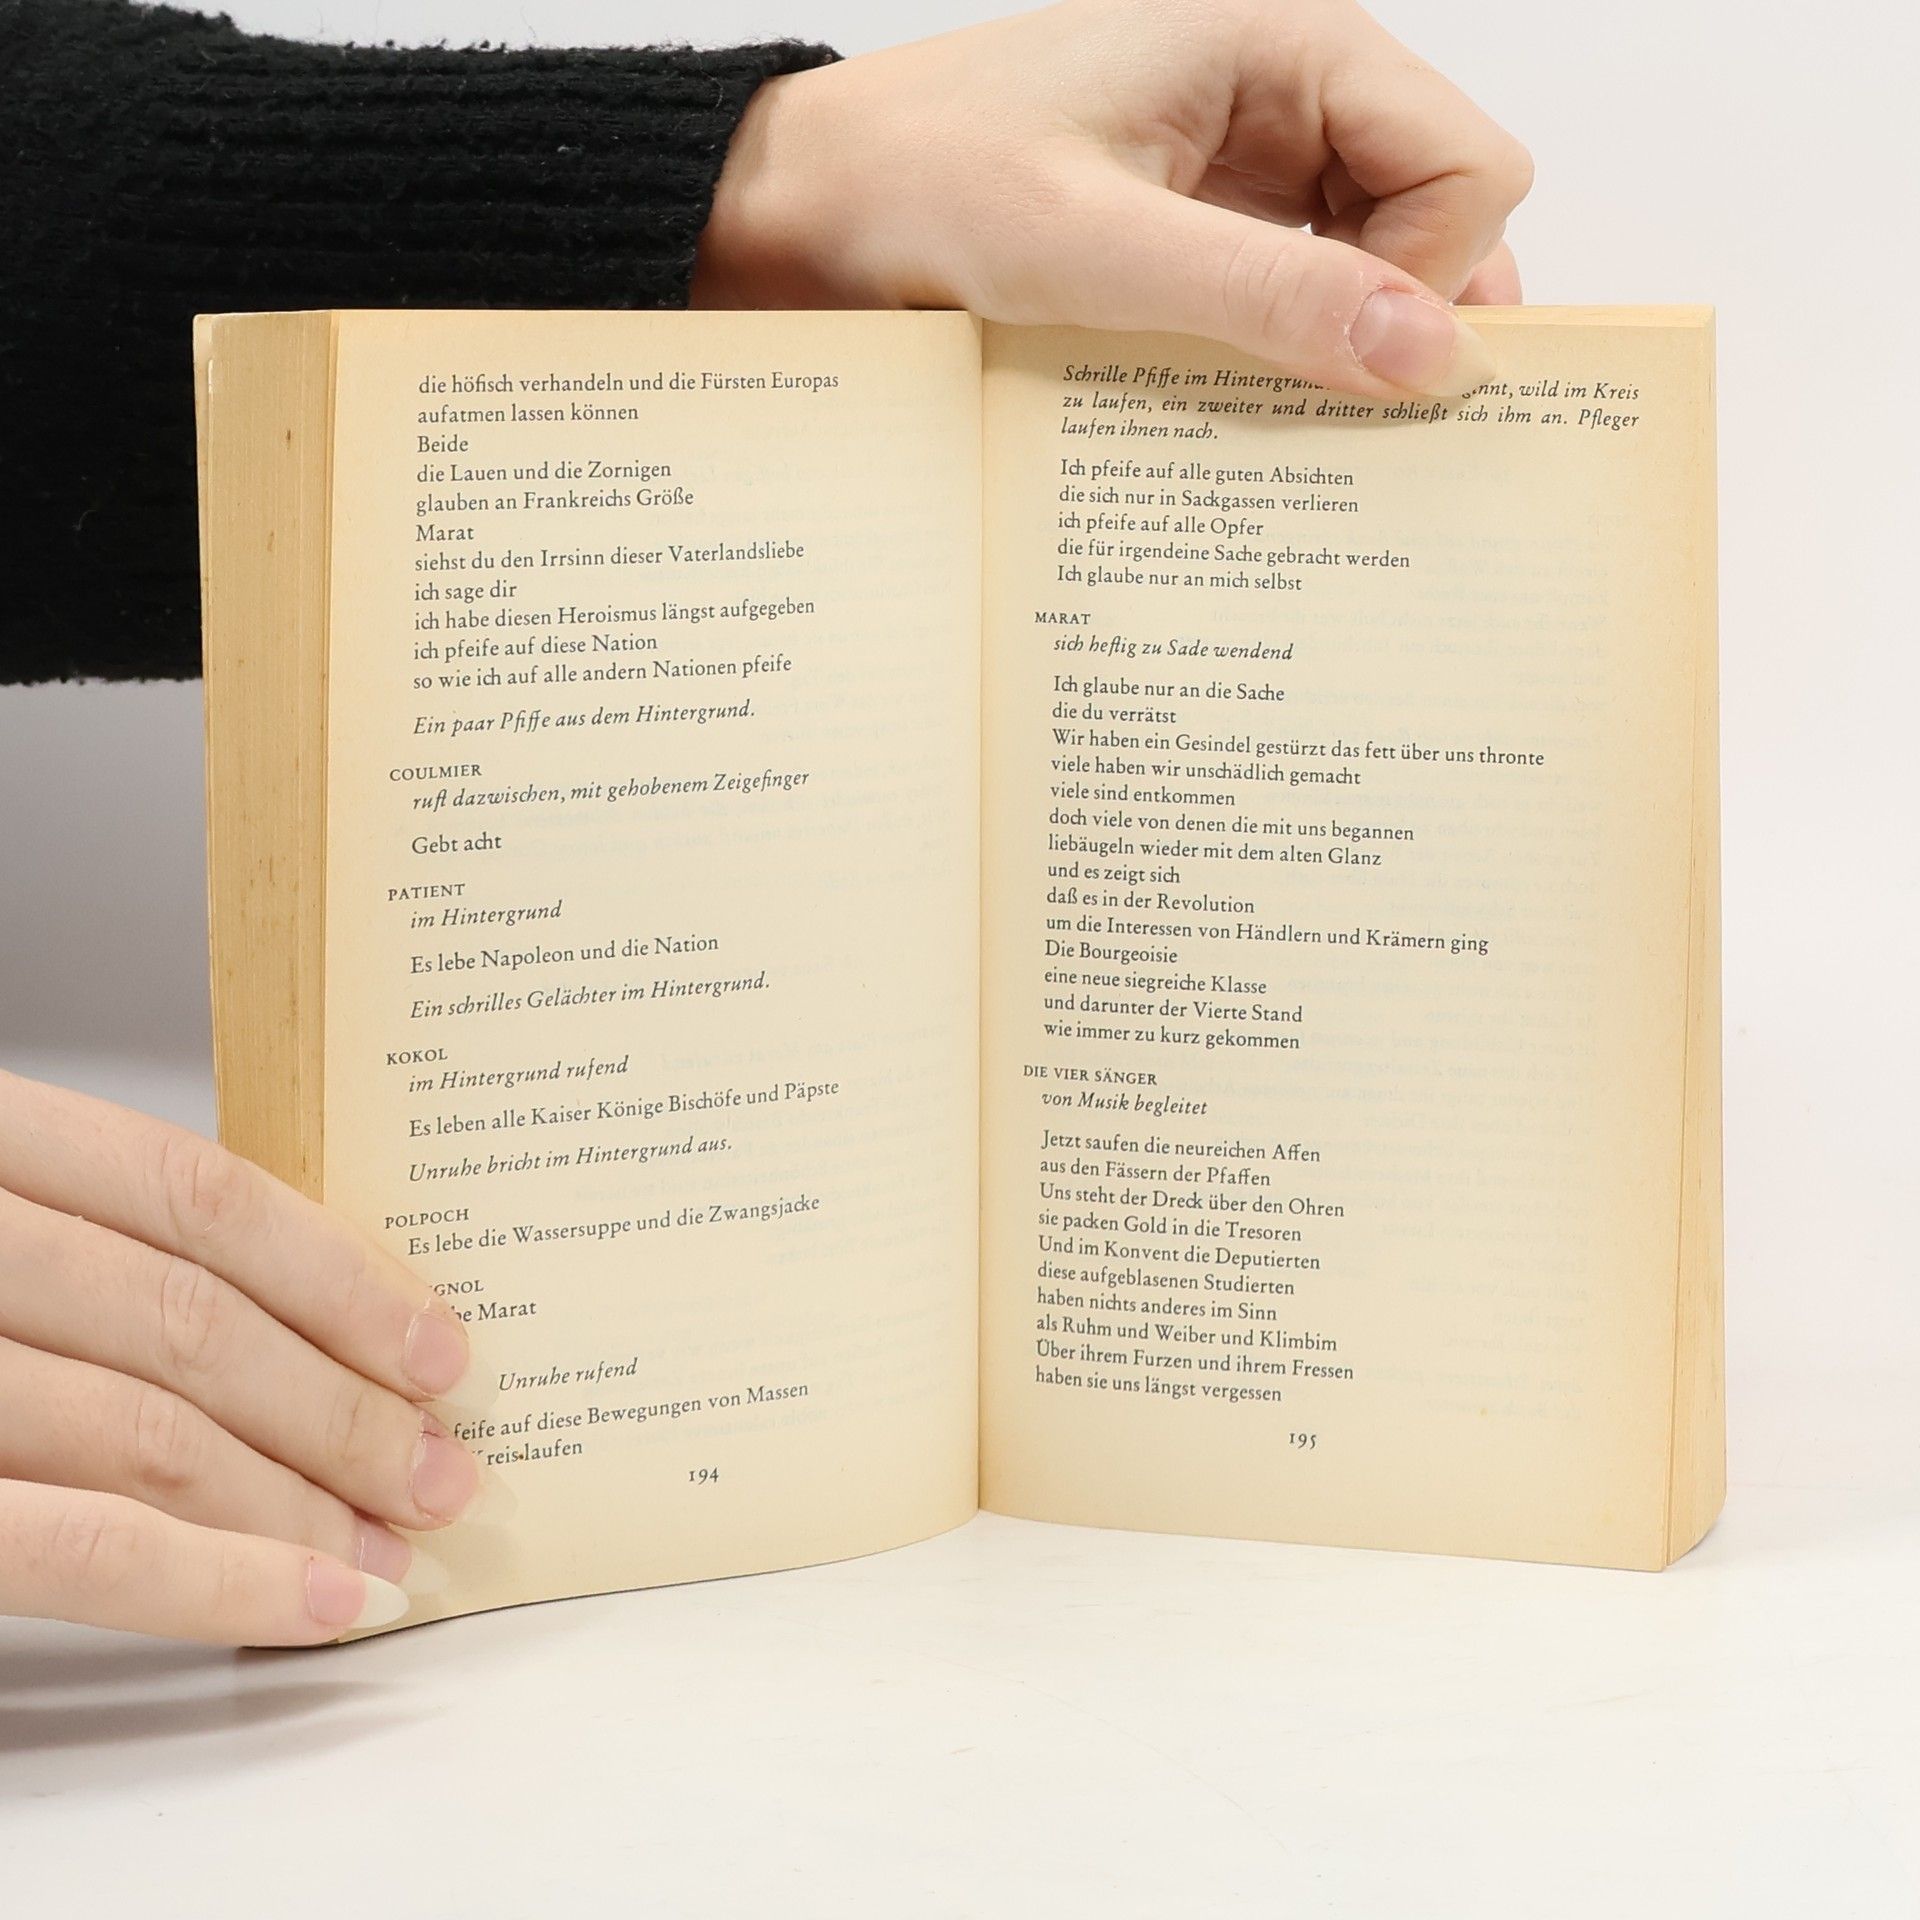 die höfisch verhandeln und die Fürsten Europas
aufatmen lassen können
Beide
die Lauen und die Zornigen
glauben an Frankreichs Größe
Marat
siehst du den Irrsinn dieser Vaterlandsliebe
ich sage dir
ich habe diesen Heroismus längst aufgegeben
ich pfeife auf diese Nation
so wie ich auf alle andern Nationen pfeife
Ein paar Pfiffe aus dem Hintergrund.
COULMIER
ruft dazwischen, mit gehobenem Zeigefinger
Gebt acht
PATIENT
im Hintergrund
Es lebe Napoleon und die Nation
Ein schrilles Gelächter im Hintergrund.
KOKOL
im Hintergrund rufend
Es leben alle Kaiser Könige Bischöfe und Päpste
Unruhe bricht im Hintergrund aus.
POLPOCH
Es lebe die Wassersuppe und die Zwangsjacke
Marat
Unruhe rufend
auf diese Bewegungen von Massen
laufen
194
Schrille Pfiffe im wild im Kreis
zu laufen, ein zweiter und dritter schließt sich ihm an. Pfleger
laufen ihnen nach.
Ich pfeife auf alle guten Absichten
die sich nur in Sackgassen verlieren
ich pfeife auf alle Opfer
die für irgendeine Sache gebracht werden
Ich glaube nur an mich selbst
MARAT
sich heftig zu Sade wendend
Ich glaube nur an die Sache
die du verrätst
Wir haben ein Gesindel gestürzt das fett über uns thronte
viele haben wir unschädlich gemacht
viele sind entkommen
doch viele von denen die mit uns begannen
liebäugeln wieder mit dem alten Glanz
und es zeigt sich
daß es in der Revolution
um die Interessen von Händlern und Krämern ging
Die Bourgeoisie
eine neue siegreiche Klasse
und darunter der Vierte Stand
wie immer zu kurz gekommen
DIE VIER SÄNGER
von Musik begleitet
Jetzt saufen die neureichen Affen
aus den Fässern der Pfaffen
Uns steht der Dreck über den Ohren
sie packen Gold in die Tresoren
Und im Konvent die Deputierten
diese aufgeblasenen Studierten
haben nichts anderes im Sinn
als Ruhm und Weiber und Klimbim
Über ihrem Furzen und ihrem Fressen
haben sie uns längst vergessen
195